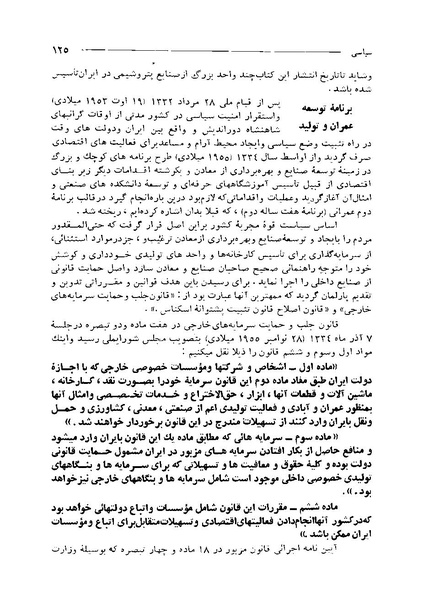 سیاسی ۱۲۵
وشاید تاتاریخ انتشار این کتاب‌چند واحد بزرگ ازصنایع پتروشیمی در ایران‌تأسیس
شده باشد .
برنامهٔ توسعه
عمران و تولید
پس از قیام ملی ۲۸ مرداد ۱۳۳۲ (۱۹ اوت ۱۹۵۳ میلادی)
واستقرار امنیت سیاسی در کشور مدتی از اوقات گرانبهای
شاهنشاه دوراندیش و واقع بین ایران ودولت های وقت
در راه تثبیت وضع سیاسی وایجاد محیط آرام و مساعدبرای فعالیت های اقتصادی
صرف گردید واز اواسط سال ۱۳۳۴ (۱۹۵۵ میلادی) طرح برنامه های کوچک و بزرگ
در زمینهٔ توسعهٔ صنایع و بهره‌برداری از معادن و یکرشته اقدامات دیگر زیر بنای
اقتصادی از قبیل تأسیس آموزشگاههای حرفه‌ای و توسعهٔ دانشکده های صنعتی و
امثال‌آن آغازگردید وعملیات واقداماتی‌که لازم‌بود دراین باره‌انجام گیرد درقالب برنامهٔ
دوم عمرانی (برنامهٔ هفت ساله دوم) ، که قبلا بدان اشاره کرده‌ایم ، ریخته شد .
اساس سیاست قوهٔ مجریهٔ کشور براین اصل قرار گرفت که حتی‌المقدور
مردم را بایجاد و توسعهٔ‌صنایع وبهره‌برداری ازمعادن ترغیب‌و ، جزدرموارد استثنائی،
از سرمایه‌گذاری برای تأسیس کارخانه‌ها و واحد های تولیدی خودداری و کوشش
خود را متوجه راهنمائی صحیح صاحبان صنایع و معادن سازد واصل حمایت قانونی
از صنایع داخلی را اجرا نماید . برای رسیدن باین هدف قوانین و مقرراتی تدوین و
تقدیم پارلمان گردید که مهمترین آنها عبارت بود از : «قانون‌جلب وحمایت سرمایه‌های
خارجی» و «قانون اصلاح قانون تثبیت پشتوانهٔ اسکناس» .
قانون جلب و حمایت سرمایه‌های‌خارجی در هفت ماده ودو تبصره درجلسهٔ
۷ آذر ماه ۱۳۳۴ (۲۸ نوامبر ۱۹۵۵ میلادی) بتصویب مجلس شورایملی رسید واینک
مواد اول وسوم و ششم قانون را ذیلا نقل میکنیم :
«ماده اول ــ اشخاص و شرکتها ومؤسسات خصوصی خارجی که با اجازهٔ
دولت ایران طبق مفاد ماده دوم این قانون سرمایهٔ خودرا بصورت نقد ، کارخانه ،
ماشین آلات و قطعات آنها ، ابزار ، حق‌الاختراع و خدمات تخصصی وامثال آنها
بمنظور عمران و آبادی و فعالیت تولیدی اعم از صنعتی ، معدنی ، کشاورزی و حمل
ونقل بایران وارد کنند از تسهیلات مندرج در این قانون برخوردار خواهند شد . »
«ماده سوم ــ سرمایه هائی که مطابق ماده یك این قانون بایران وارد میشود
و منافع حاصل از بکار افتادن سرمایه های مزبور در ایران مشمول حمایت قانونی
دولت بوده و کلیهٔ حقوق و معافیت ها و تسهیلاتی که برای سرمایه ها و بنگاههای
تولیدی خصوصی داخلی موجود است شامل سرمایه ها و بنگاههای خارجی نیزخواهد
بود . » .
«ماده ششم ــ مقررات این قانون شامل مؤسسات واتباع دولتهائی خواهد بود
که‌در کشور آنها انجام‌دادن فعالیتهای‌اقتصادی وتسهیلات‌متقابل‌برای اتباع ومؤسسات
ایران ممکن باشد .»
آیین نامه اجرائی قانون مزبور در ۱۸ ماده و چهار تبصره که بوسیلهٔ وزارت